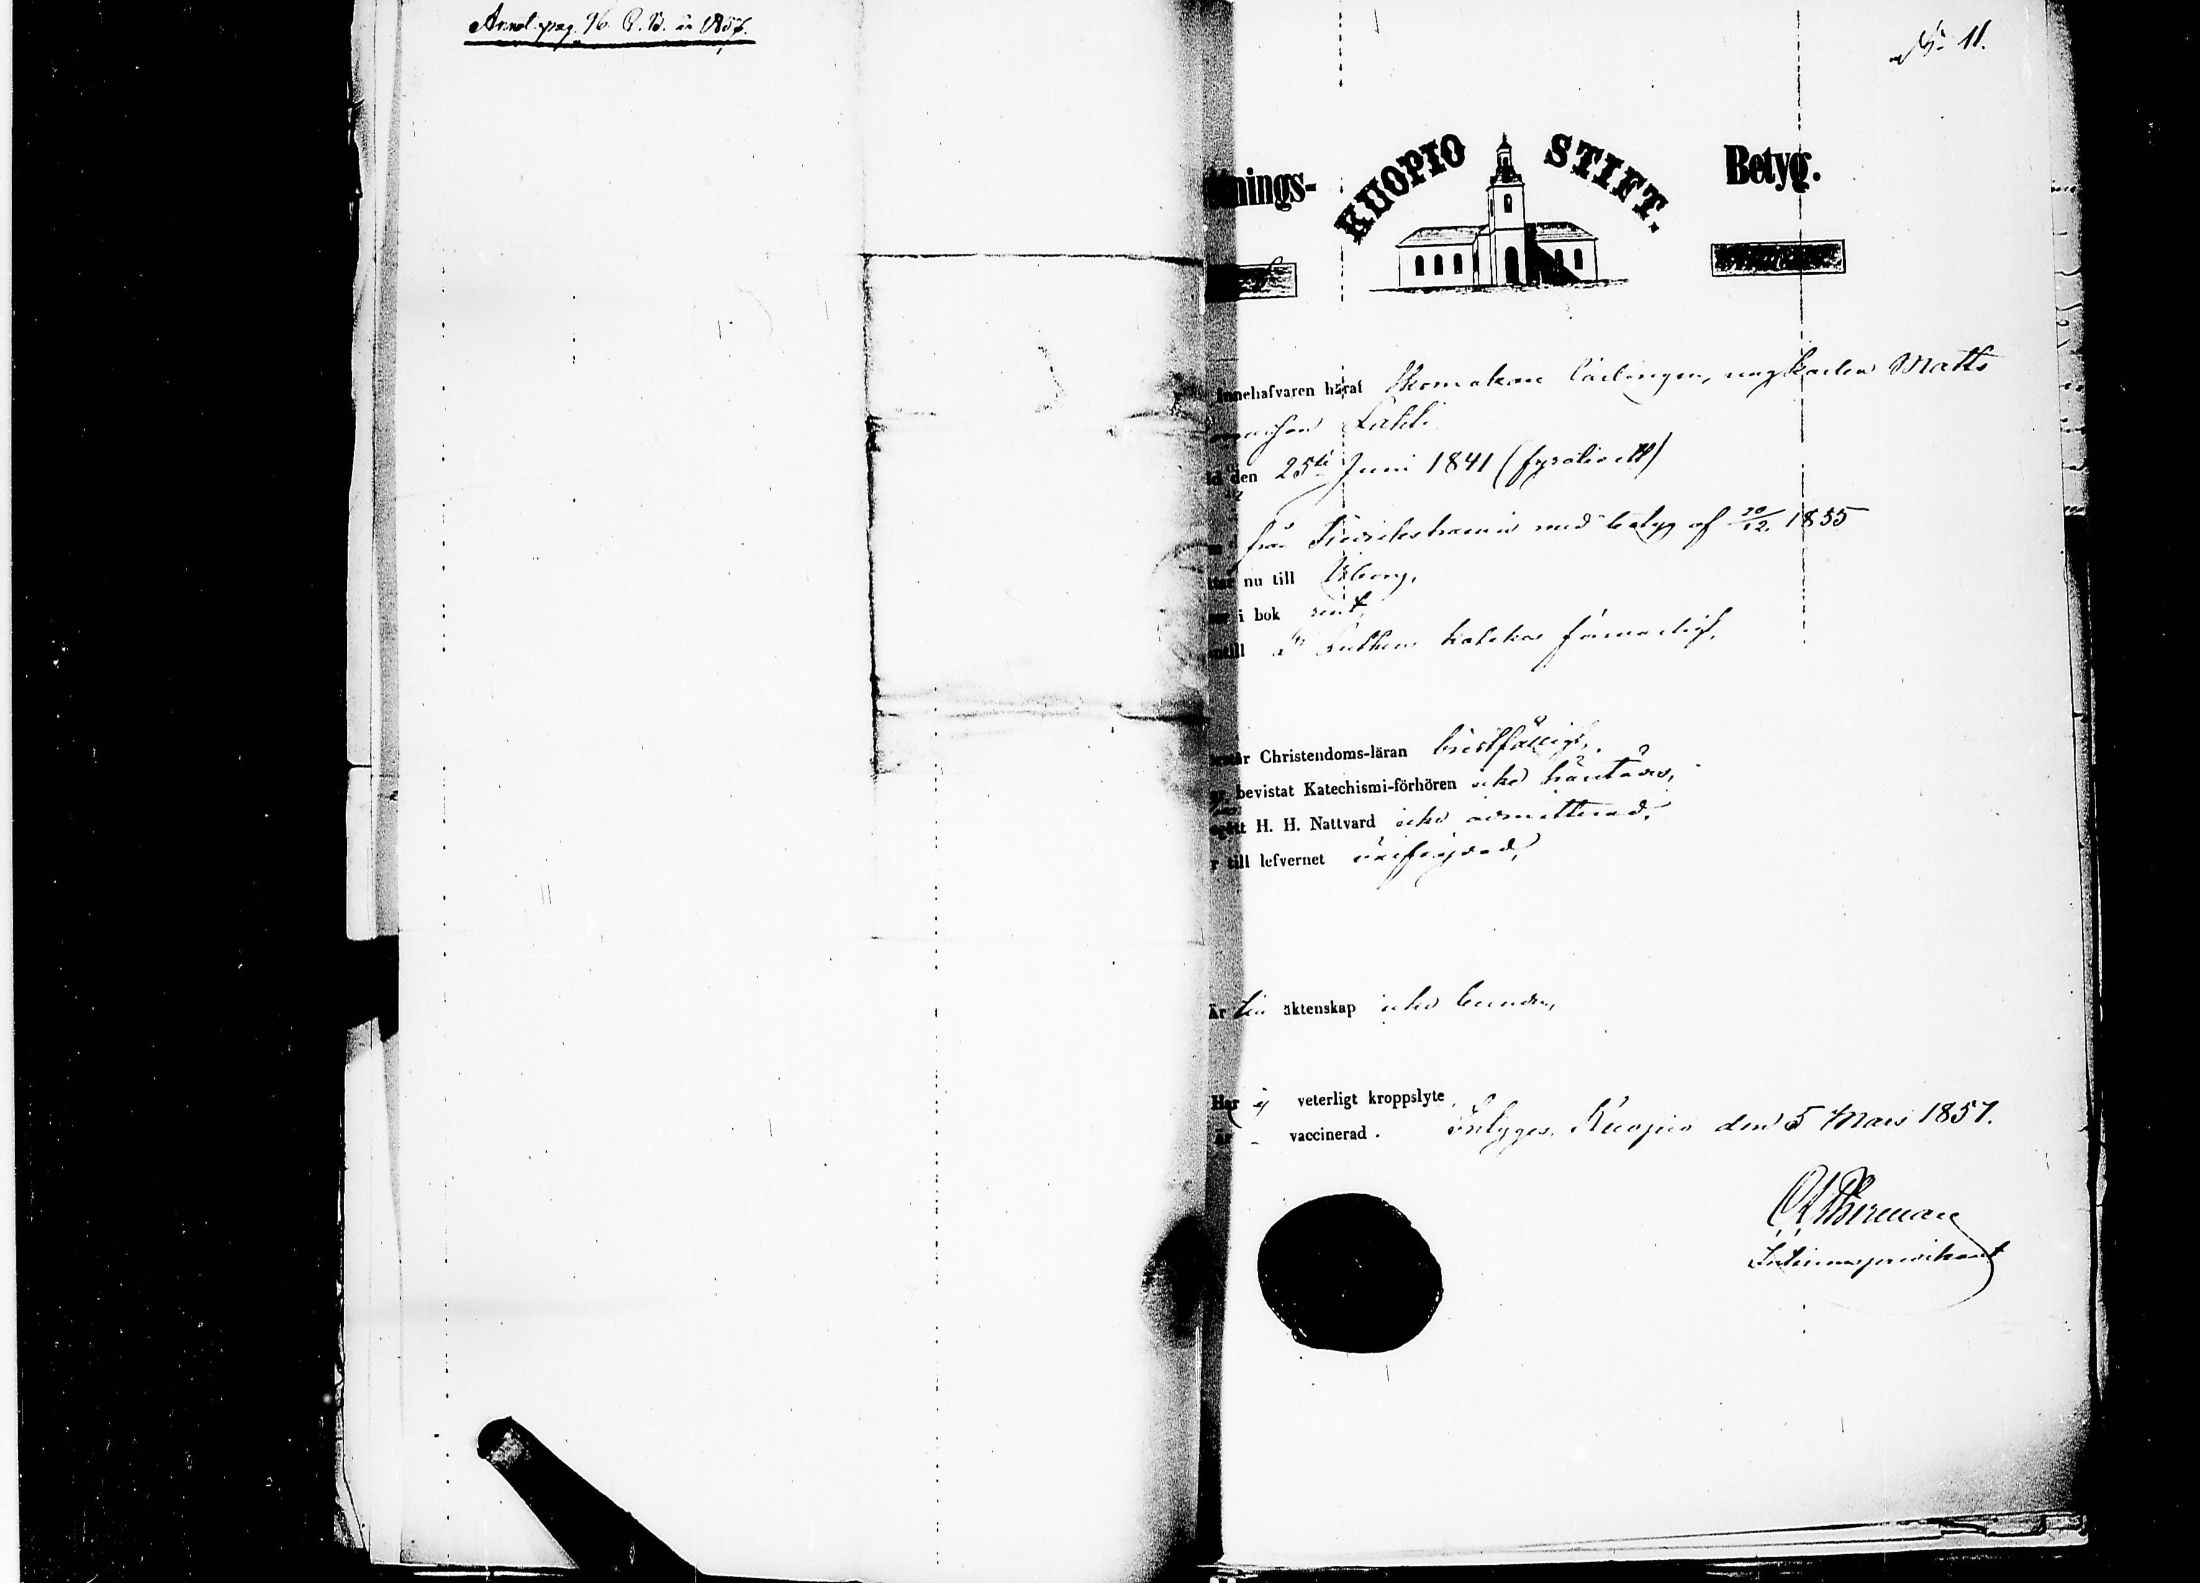 Anmel. pag. 96. C. B. år 1857.
No 11.
nings- KUOPIO STIFT. Betyg.
Innehafvaren häraf Skomakare lärlingen, ynglingen Matts
Lahti
den 25te Juni 1841 (fyratioett)
från Fredrikshamn med betyg af 20/12. 1855
nu till Wiborg.
i bok rent,
till Lutheri kateches försvarligt,
Christendoms-läran bristfälligt,
bevistat Katechismi-förhören icke härstädes,
H. H. Nattvard icke admitterad,
till lefvernet oförvitlig
Är till äktenskap icke bunden,
Har ej veterligt kroppslyte
Är vaccinerad. Betygas, Kuopio den 5 Mars 1857.